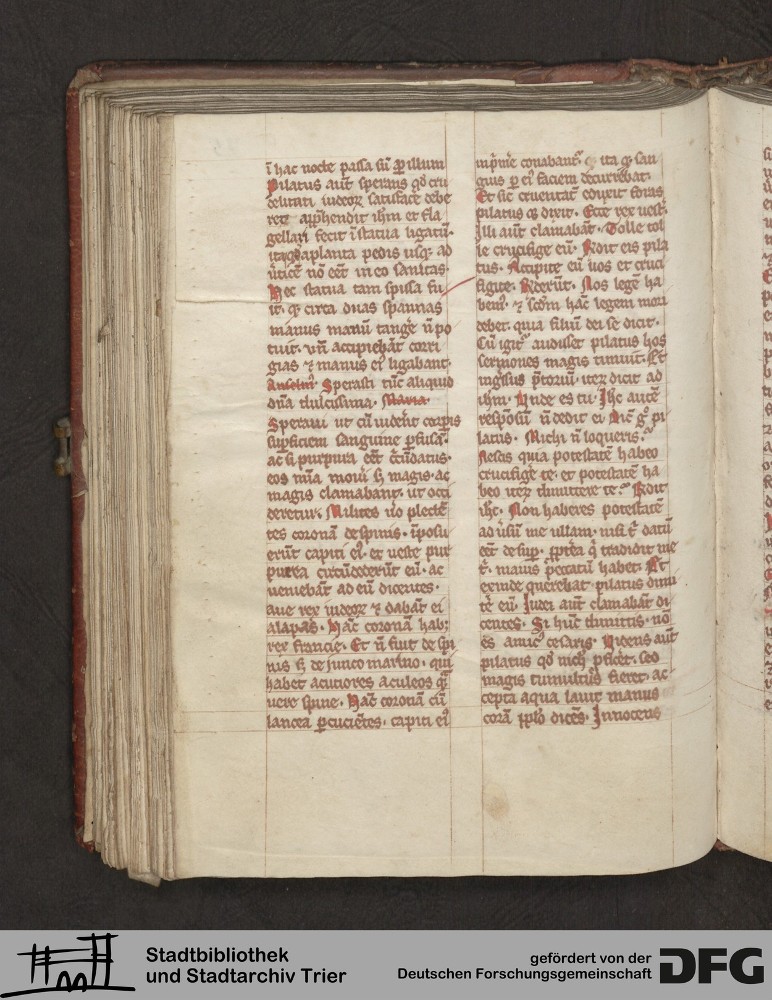 ī hac nocte passa sū ꝑ illum
Pilatus aūt sperans qd̛ cru
delitati iudeoꝝ satisfacͤ debe
ret apprͤhendit ihm et fla
gellari fecit ī statua ligatū
itaqd̛ a planta pedis usqꝫ ad
ūticē nō eēt in eo sanitas.
Hec statua tam spissa fu
it. qꝫ circa duas spannas
manus manū tangͤ n̄ po
tuit. vn̄ accipiebāt corri
gias ⁊ manus eiꝰ ligabant.
Anselmꝰ. Sperasti tūc aliquid
dn̄a dulcissima. Maria.
Speraui ut cū uidērt corpꝰis
suꝑficiem sanguine ꝑfusā.
ac si purpura eēt cͥcūdatus.
eos mīa moūi sꝫ magis. ac
magis clamabant. ut occi
deretur. Milites ūo plectē
tes coronā de spinis. īposu
erūt capiti eiꝰ. et ueste pur
purea circūdederūt eū. ac
ueniebāt ad eū dicentes.
aue rex iudeoꝝ ⁊ dabāt ei
alapas. Hāc coronā habꝫ
rex francie. Et n̄ fuit de spi
nis sꝫ de junco marino. qui
habet acutiores aculeos qͣ̄
uere spine. Hāc coronā cū
lancea ꝑcuciētes. capiti eiꝰ
inpͥmͤe conabantᷣ. ita qꝫ san
guis ꝑ eiꝰ faciem decurrebat.
Et sic cruentatū eduxit foras
pilatus eis dixit. Ecce rex uestͤ.
Illi aūt clamabāt. Tolle tol
le crucifige eū. Rͦdit eis pila
tus. Accipite eū uos et cruci
figite. Rͦderūt. Nos legē ha
bemꝰ. ⁊ scd̄m hāc legem mori
debet. quia filiū dei se dicit.
Cū igitᷣ audisset pilatus hos
sermones magis timuit. Et
ingͤssus p̄toriū. iteꝝ dicit ad
ihm. Vnde es tu. Ihc autē
responsū n̄ dedit ei. Dicͭ gͦ pi
latus. Michi n̄ loqueris.
Nescis quia potestatē habeo
crucifigͤe te. et potestatē ha
beo iteꝝ dimittere te. Rͦdit
ihc. Non haberes potestatē
aduͤsū me ullam. nisi tͥ datū
eēt desuꝑ. ꝓpterͤa qͥ tradidit me
tͥ. maius peccatū habet. Et
exinde querebat pilatus dimi
tͤe eū. Iudei aūt clamabāt di
centes. Si hūc dimittis. nō
es amicꝰ cesaris. Videns aūt
pilatus qd̛ nichͥ ꝓficͤet. sed
magis tumultus fieret. ac
cepta aqua lauit manus
corā ꝓplo dicēs. Innocens
Stadtbibliothek
und Stadtarchiv Trier
gefördert von der
Deutschen Forschungsgemeinschaft
DFG